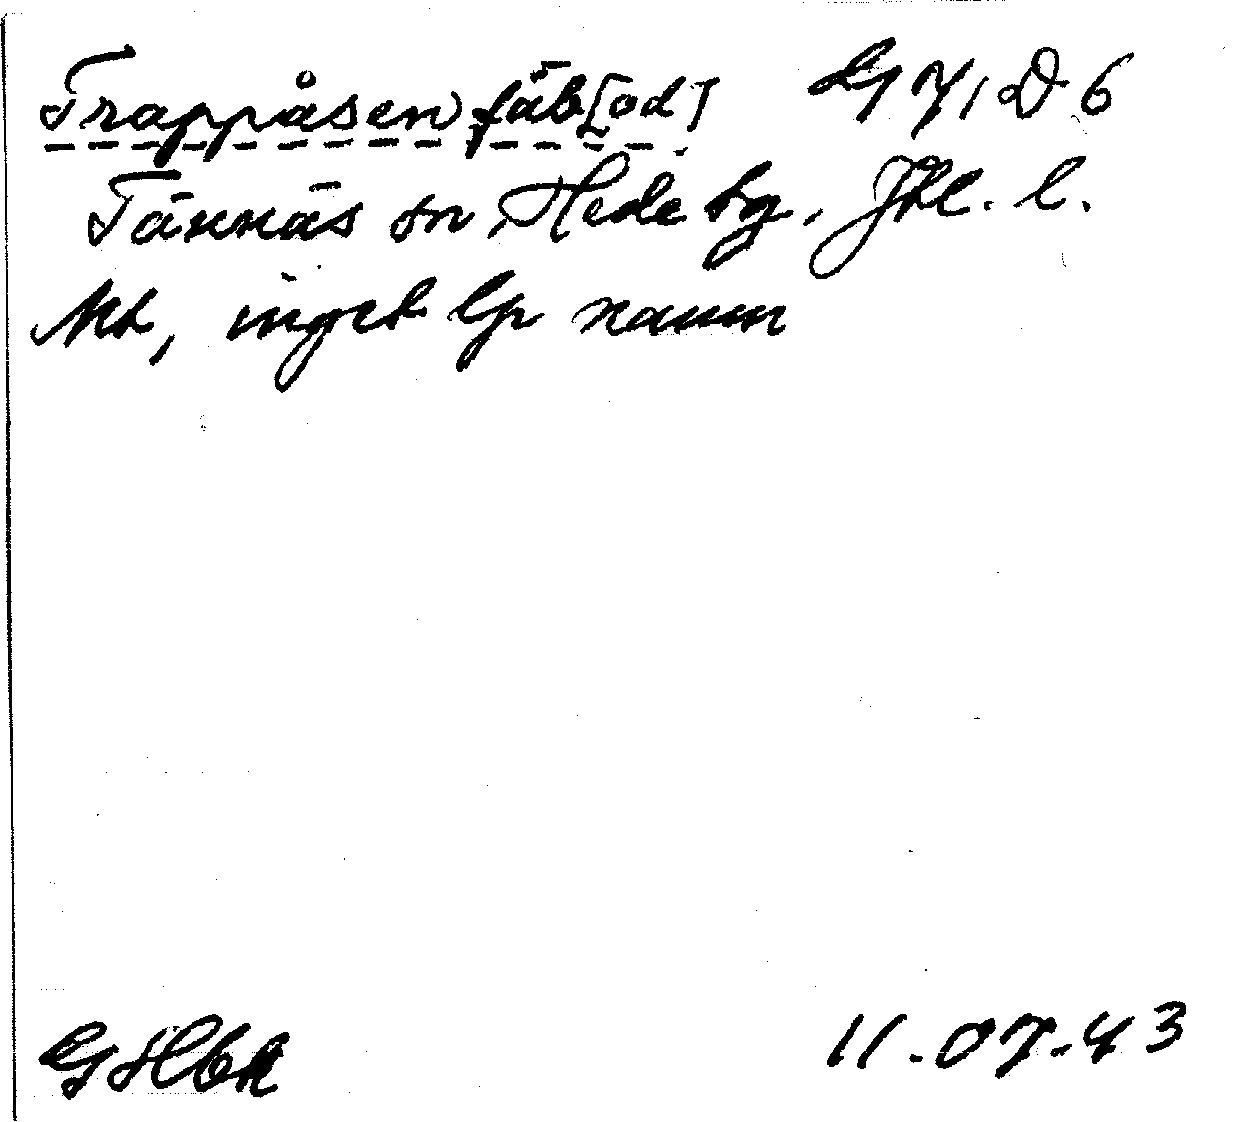 Trappåsen fäb[od] G 71 D 6
Tännäs sn, Hede tg, Jtl. l.
Nb, inget lp namn
GHbk
11.07.43